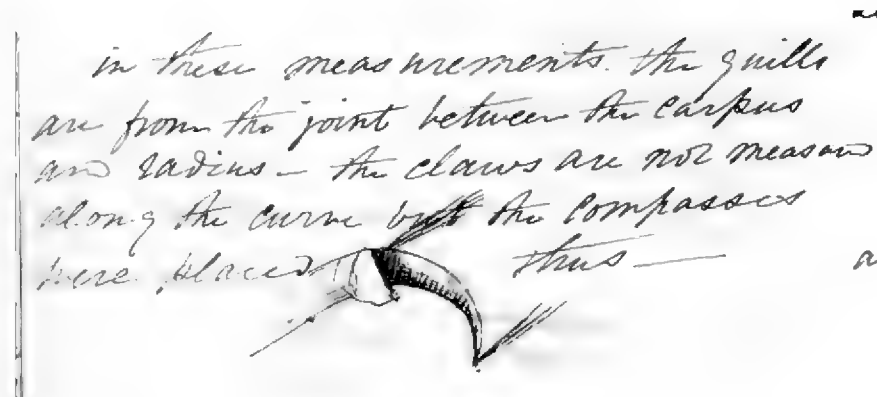 in these measurements. the quills
are from the joint between the carpus
and radius – the claws are not measured
along the curve but the compasses
were placed thus —
a